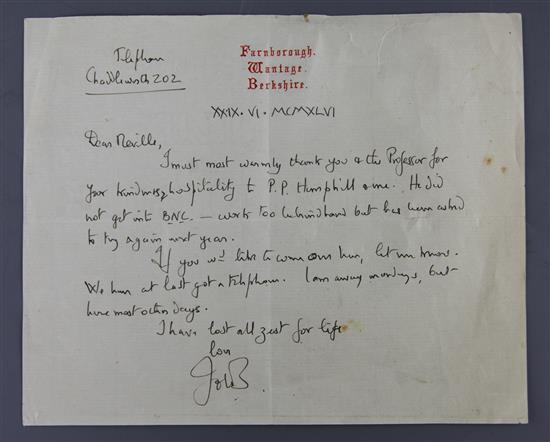 Telephone
Chaddleworth 202
Farnborough.
Wantage.
Berkshire.
XXIX · VI · MCMXLVI
Dear Neville,
I must most warmly thank you & the Professor for
your kindness & hospitality to P. P. Hemphill & me. He did
not get into B.N.C. — work too behindhand but has been asked
to try again next year.
If you wd like to come over here, let me know.
We have at last got a telephone. I am away mondays, but
here most other days.
I have lost all zest for life
Love
John B